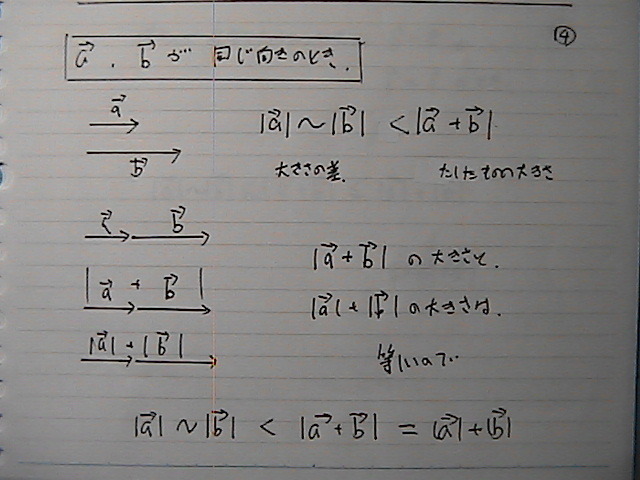 ④
a⃗, b⃗ が 同じ向きのとき.
a⃗
b⃗
|a⃗| ～ |b⃗| < |a⃗ + b⃗|
大きさの差. たしたものの大きさ
a⃗ b⃗
|a⃗ + b⃗|
|a⃗| + |b⃗|
|a⃗ + b⃗| の大きさと.
|a⃗| + |b⃗| の大きさは.
等しいので
|a⃗| ～ |b⃗| < |a⃗ + b⃗| = |a⃗| + |b⃗|